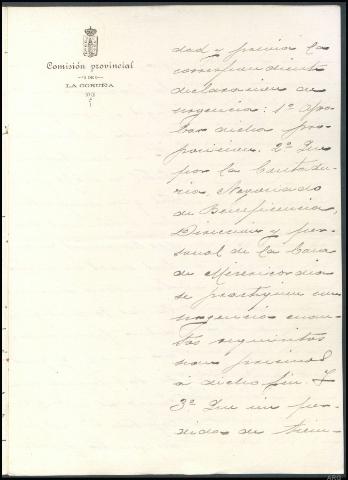 Comisión provincial
DE
LA CORUÑA
dad y previa la
correspondiente
declaracion de
urgencia: 1º Apro-
bar dicha pro-
posicion. 2º Que
por la Contadu-
ria, Negociado
de Beneficencia,
Direccion y per-
sonal de la Casa
de Misericordia
se practiquen con
urgencia cuan-
tos requisitos
son precisos
á dicho fin. Y
3º Que sin per-
dida de tiem-